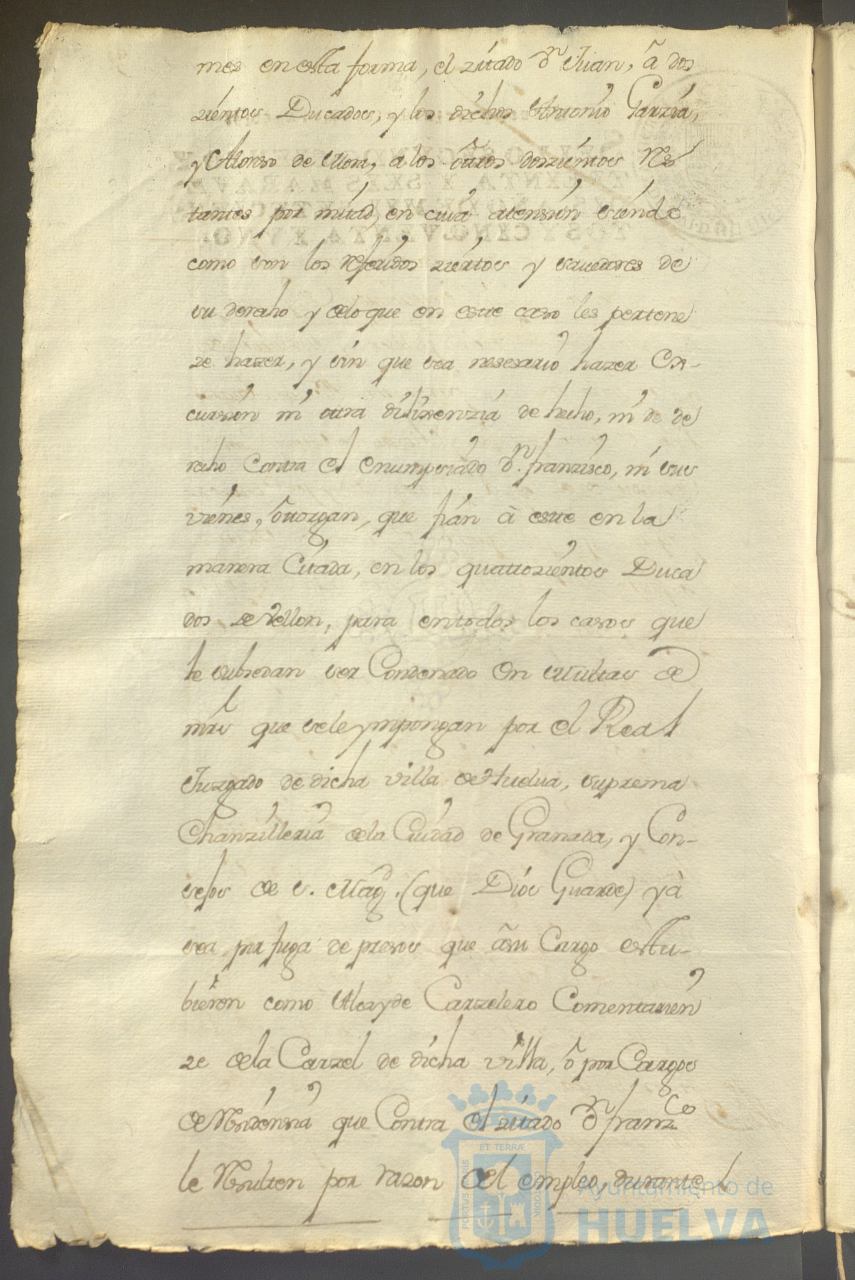 mes en esta forma, el zitado Dn Juan, â dos
zientos Ducados, y los dichos Antonio Garzia,
y Alonso de Mora, a los ôttros doszientos Res
tantes por mitad, en cuia atension siendo
como son los referidos ziertos y savedores de
su derecho y de lo que en este caso les pertene
ze hazer, y sin que sea nesesario hazer Ex-
cursion ni otra dilixenzia de hecho, ni de de
recho Contra el enunpsiado Dn. franzisco, ni sus
vienes, ôttorgan, que fian à este en la
manera Citada, en los quattrozientos Duca
dos de Vellon, para en todos los casos que
le subsedan ser Condenado en Multas de
mrs que se le ympongan por el Real
Juzgado de dicha villa de Huelva, suprema
Chanzilleria de la Ciudad de Granada, y Con-
sejos de s. Magd. (que Dios Guarde) yà
sea por fuga de presos que âsu Cargo estu-
bieron como Alcayde Carzelero Comentarien
ze de la Carzel de dicha villa, ô por Cargos
de Residenzia que Contra el zitado Dn franzco
le Resulten por razon del empleo, durante l
ET TERRÆ
Ayuntamiento de
HUELVA